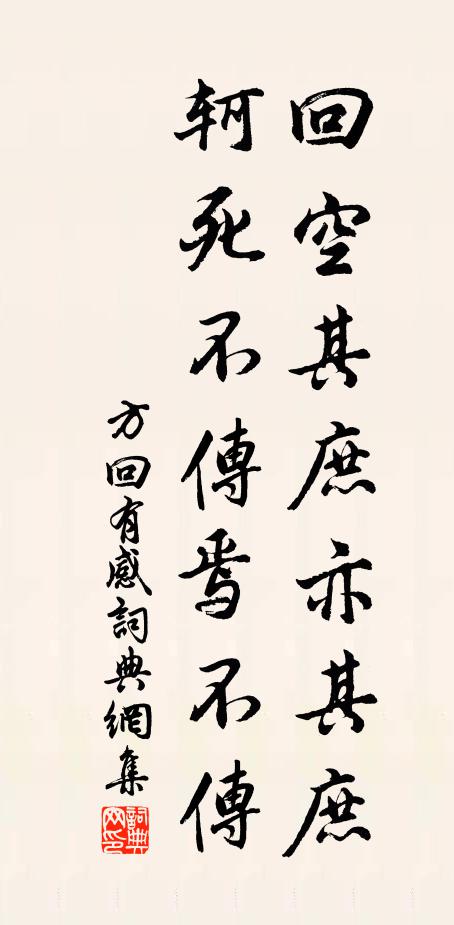 回空其庶亦其庶
軻死不傳焉不傳
方回有感詞典網集
詞典網印